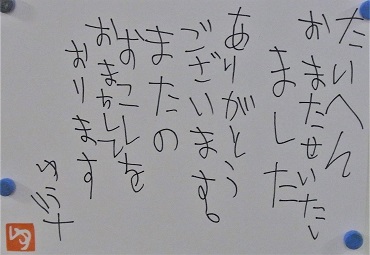 たいへん
おまたせいたし
ました
ありがとう
ございます。
またの
おこしを
おまちして
おります